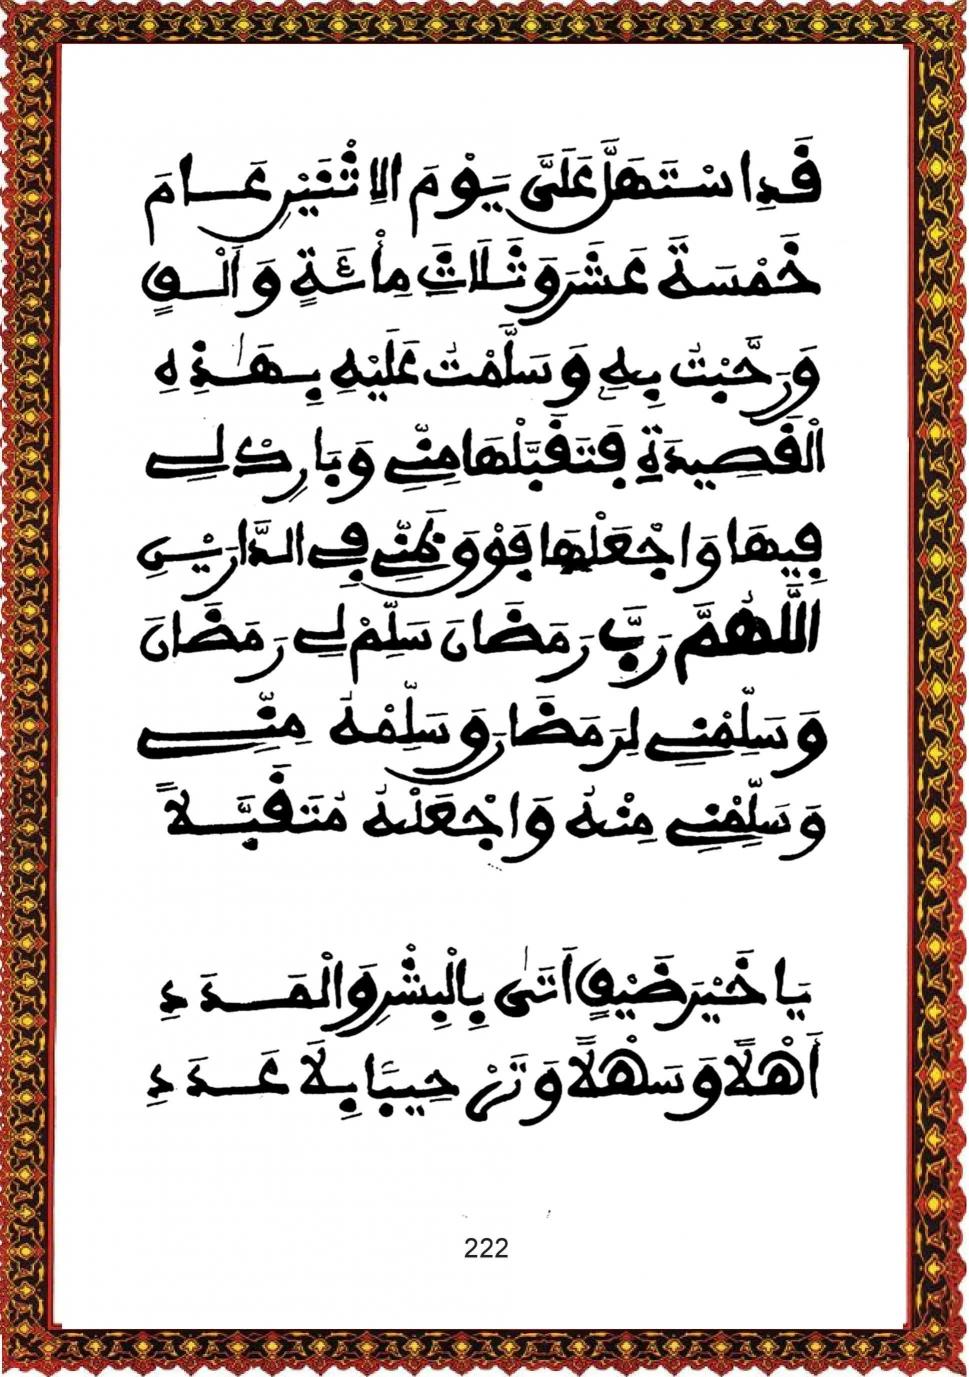 قَدِ اسْتَهَلَّ عَلَىَّ يَوْمَ الِاثْنَيْنِ عَامَ
خَمْسَةَ عَشَرَ وَثَلَاثِ مِأْئَةٍ وَأَلْفٍ
وَرَحَّبْتُ بِهِ وَسَلَّمْتُ عَلَيْهِ بِهَٰذِهِ
الْقَصِيدَةِ فَتَقَبَّلْهَا مِنِّے وَبَارِكْ لِے
فِيهَا وَاجْعَلْهَا فَوْقَ ظَنِّے فِے الدَّارَيْنِ
اللَّهُمَّ رَبَّ رَمَضَانَ سَلِّمْ لِے رَمَضَانَ
وَسَلِّمْنِے لِرَمَضَانَ وَسَلِّمْهُ مِنِّے
وَسَلِّمْنِے مِنْهُ وَاجْعَلْهُ مُتَقَبَّلاً
يَا خَيْرَ ضَيْفٍ أَتَىٰ بِالْبِشْرِ وَالْمَدَدِ
أَهْلًا وَسَهْلًا وَتَرْحِيبًا بِلَا عَدَدِ
222